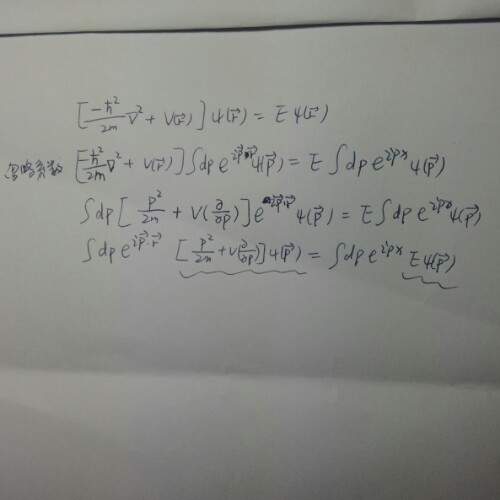 [-ħ²/2m ∇² + V(r⃗)] ψ(r⃗) = E ψ(r⃗)
忽略系数 [-ħ²/2m ∇² + V(r⃗)] ∫dp e^{ip⃗·r⃗} ψ(p⃗) = E ∫dp e^{ipx} ψ(p⃗)
∫dp [p²/2m + V(∂/∂p)] e^{ip⃗·r⃗} ψ(p⃗) = E ∫dp e^{ipx} ψ(p⃗)
∫dp e^{ip⃗·r⃗} [p²/2m + V(∂/∂p)] ψ(p⃗) = ∫dp e^{ipx} E ψ(p⃗)